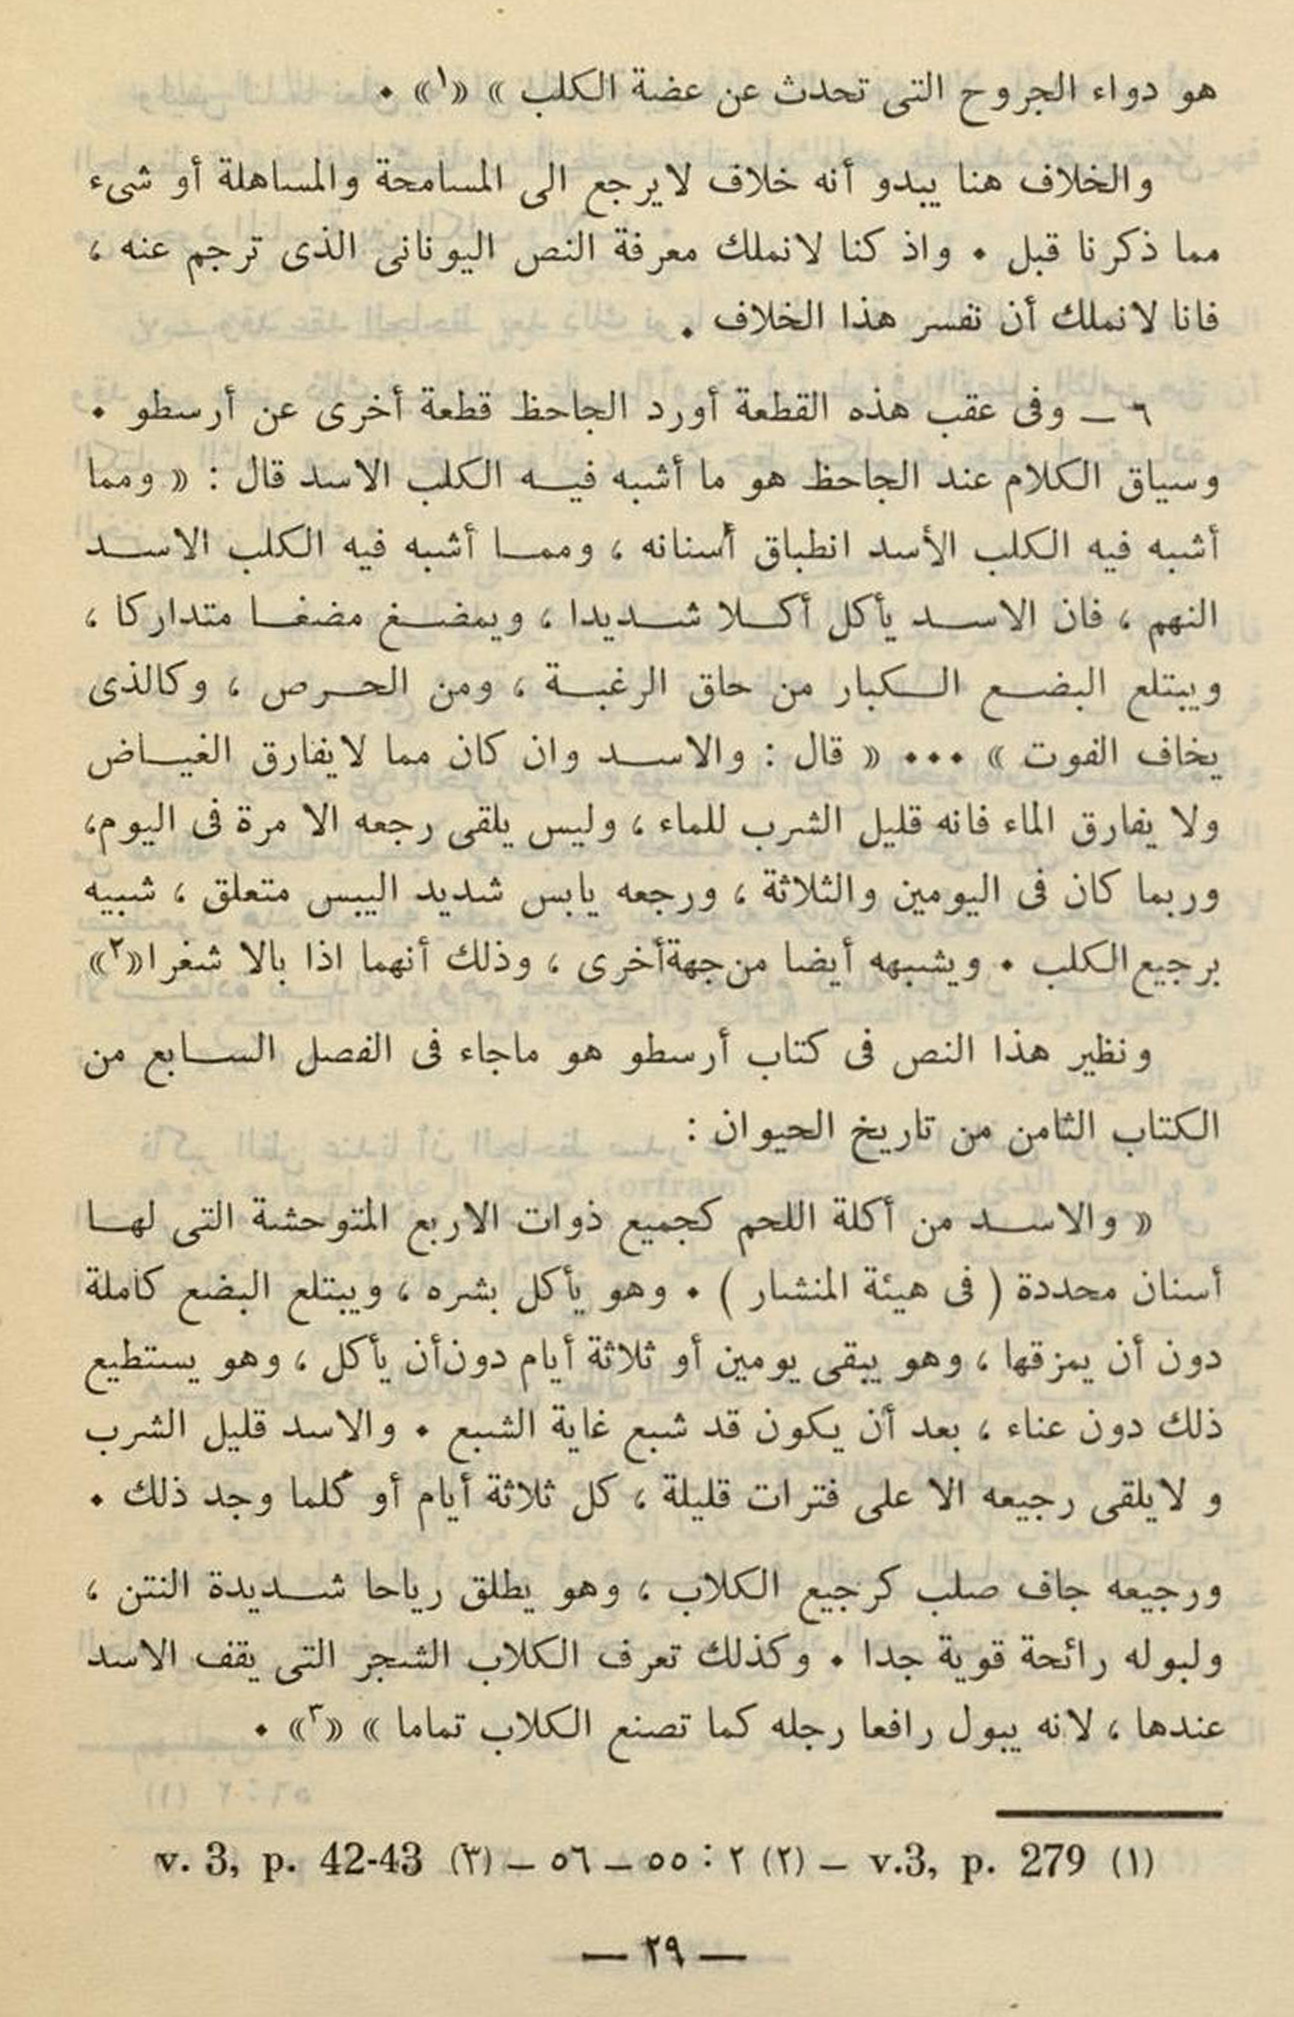 هو دواء الجروح التى تحدث عن عضة الكلب » «١» .
والخلاف هنا يبدو أنه خلاف لايرجع الى المسامحة والمساهلة أو شىء
مما ذكرنا قبل . واذ كنا لانملك معرفة النص اليونانى الذى ترجم عنه ،
فانا لانملك أن نفسر هذا الخلاف .
٦ ــ وفى عقب هذه القطعة أورد الجاحظ قطعة أخرى عن أرسطو .
وسياق الكلام عند الجاحظ هو ما أشبه فيــه الكلب الاسد قال : « ومما
أشبه فيه الكلب الأسد انطباق أسنانه ، وممــا أشبه فيه الكلب الاســد
النهم ، فان الاســد يأكل أكــلا شــديدا ، ويمضــغ مضغــا متداركا ،
ويبتلع البضــع الــكبار من حاق الرغبــة ، ومن الحــرص ، وكالذى
يخاف الفوت » ... « قال : والاســد وان كان مما لايفارق الغيــاض
ولا يفارق الماء فانه قليل الشرب للماء ، وليس يلقى رجعه الا مرة فى اليوم،
وربما كان فى اليومين والثلاثة ، ورجعه يابس شديد اليبس متعلق ، شبيه
برجيع الكلب . ويشبهه أيضا من جهة أخرى ، وذلك أنهما اذا بالا شغرا«٢»
ونظير هذا النص فى كتاب أرسطو هو ماجاء فى الفصل الســابع من
الكتاب الثامن من تاريخ الحيوان :
« والاســد من أكلة اللحم كجميع ذوات الاربع المتوحشة التى لهــا
أسنان محددة ( فى هيئة المنشار ) . وهو يأكل بشره ، ويبتلع البضع كاملة
دون أن يمزقها ، وهو يبقى يومين أو ثلاثة أيام دون أن يأكل ، وهو يستطيع
ذلك دون عناء ، بعد أن يكون قد شبع غاية الشبع . والاسد قليل الشرب
و لايلقى رجيعه الا على فترات قليلة ، كل ثلاثة أيام أو كلما وجد ذلك .
ورجيعه جاف صلب كرجيع الكلاب ، وهو يطلق رياحا شــديدة النتن ،
ولبوله رائحة قوية جدا . وكذلك تعرف الكلاب الشجر التى يقف الاسد
عندها ، لانه يبول رافعا رجله كما تصنع الكلاب تماما » «٣» .
(١) v.3, p. 279 ــ (٢) ٢ : ٥٥ ــ ٥٦ ــ (٣) v. 3, p. 42-43
ــ ٢٩ ــ